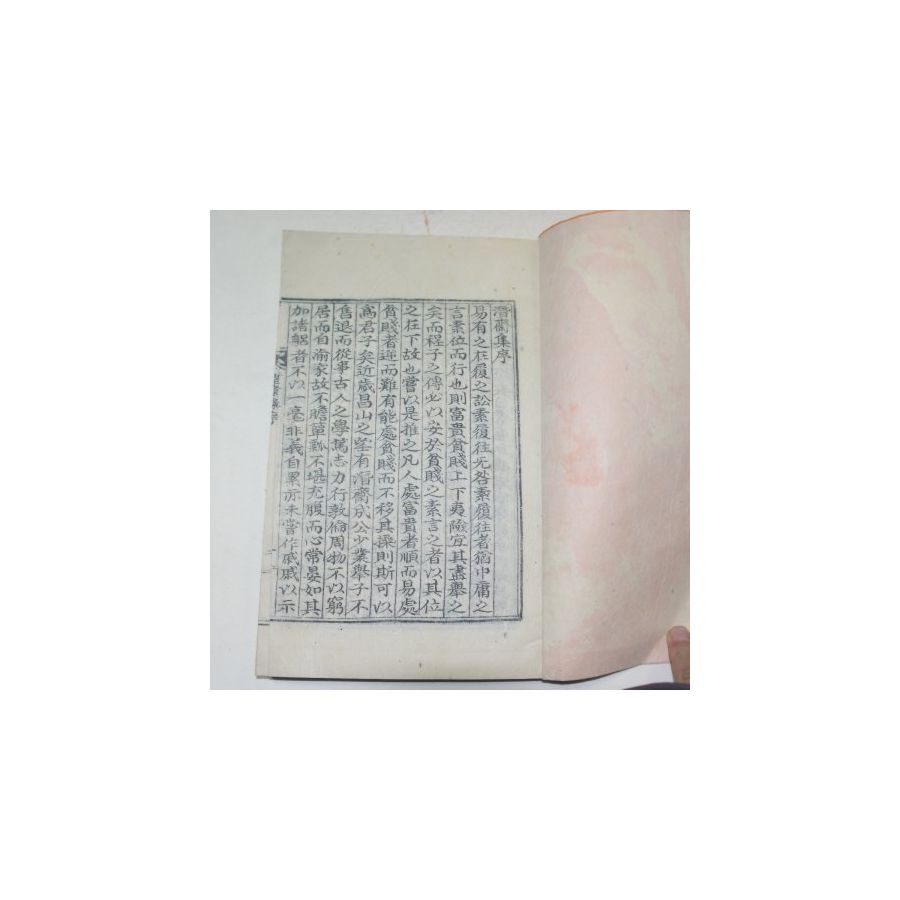 潛齋集序
易有之在履之訟素履往无咎素履往者猶中庸之
言素位而行也則富貴貧賤上下夷險宜其盡舉之
矣而程子之傳必以安於貧賤之素言之者以其位
之在下故也嘗以是推之凡人處富貴者順而易處
貧賤者逆而難有能處貧賤而不移其操則斯可以
爲君子矣近歲昌山之望有潛齋成公少業舉子不
售退而從事古人之學篤志力行敦倫周物不以窮
居而自渝家故不贍簞瓢不堪充腹而心常晏如其
加諸躬者不以一毫非義自累亦未嘗作戚戚以示